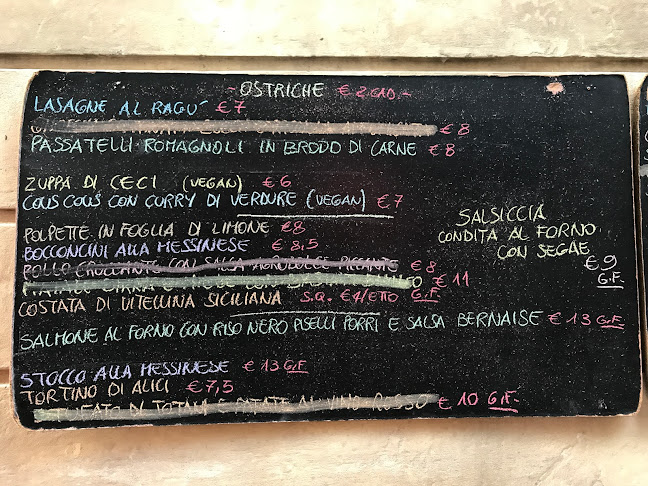 - OSTRICHE € 2 CAD. -
LASAGNE AL RAGU' € 7
€ 8
PASSATELLI ROMAGNOLI IN BRODO DI CARNE € 8
ZUPPA DI CECI (VEGAN) € 6
COUS COUS CON CURRY DI VERDURE (VEGAN) € 7
POLPETTE IN FOGLIA DI LIMONE €8
BOCCONCINI ALLA MESSINESE € 8,5
POLLO CROCCANTE CON SALSA AGRODOLCE PICCANTE € 8
€ 11
COSTATA DI VITELLINA SICILIANA S.Q. €4/ETTO G.F.
SALSICCIA
CONDITA AL FORNO
CON SEGAE
€ 9
G.F.
SALMONE AL FORNO CON RISO NERO PISELLI PORRI E SALSA BERNAISE € 13 G.F.
STOCCO ALLA MESSINESE € 13 G.F.
TORTINO DI ALICI € 7,5
DI TOTANI E PATATE AL VINO ROSSO € 10 G.F.